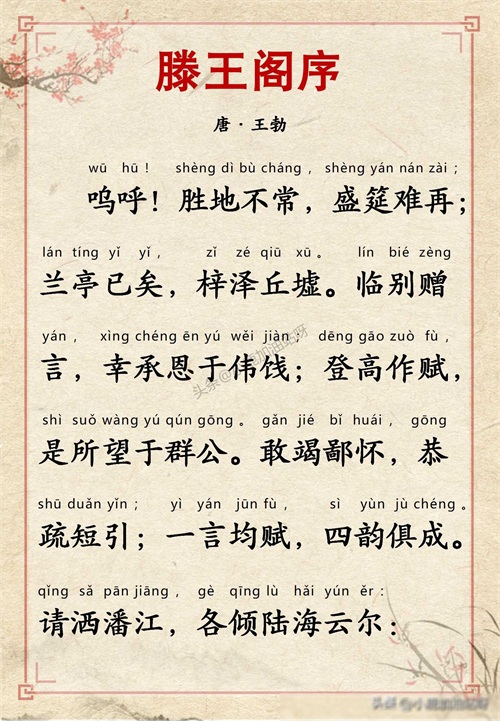 滕王阁序
唐·王勃
wū hū！ shèng dì bù cháng，shèng yán nán zài；
呜呼！胜地不常，盛筵难再；
lán tíng yǐ yǐ， zǐ zé qiū xū。 lín bié zèng
兰亭已矣，梓泽丘墟。临别赠
yán， xìng chéng ēn yú wěi jiàn； dēng gāo zuò fù，
言，幸承恩于伟饯；登高作赋，
shì suǒ wàng yú qún gōng。gǎn jié bǐ huái， gōng
是所望于群公。敢竭鄙怀，恭
shū duǎn yǐn； yì yán jūn fù， sì yùn jù chéng。
疏短引；一言均赋，四韵俱成。
qǐng sǎ pān jiāng， gè qīng lù hǎi yún ěr：
请洒潘江，各倾陆海云尔：